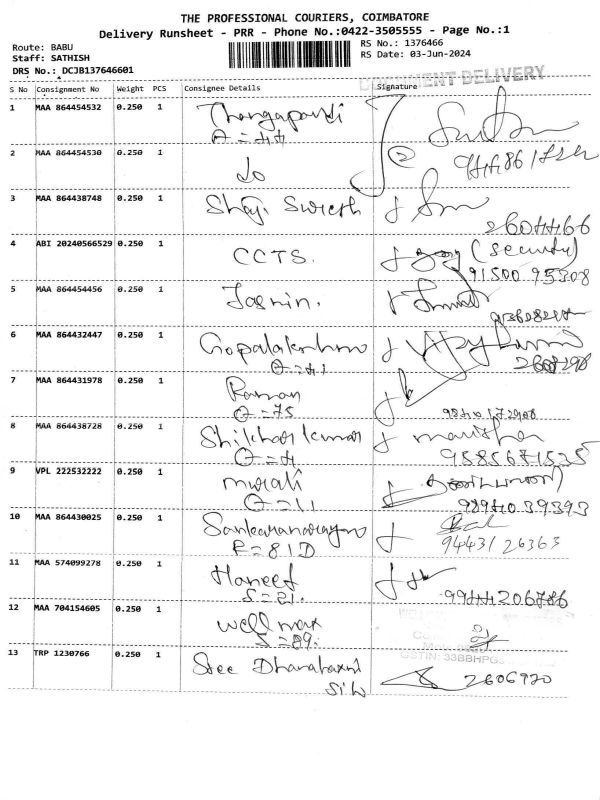 THE PROFESSIONAL COURIERS, COIMBATORE
Delivery Runsheet - PRR - Phone No.:0422-3505555 - Page No.:1
Route: BABU
Staff: SATHISH
DRS No.: DCJB137646601
RS No.: 1376466
RS Date: 03-Jun-2024
DELIVERY
S No Consignment No Weight PCS Consignee Details Signature
1 MAA 864454532 0.250 1
2 MAA 864454530 0.250 1 Jo
3 MAA 864438748 0.250 1 Shaji Suresh
2604466
4 ABI 20240566529 0.250 1 CCTS. (Security)
91500 95308
5 MAA 864454456 0.250 1 Jasmin.
6 MAA 864432447 0.250 1 Gopalakrishnan
7 MAA 864431978 0.250 1 Raman
=75
8 MAA 864438728 0.250 1 Shikhar kumar
9585671525
9 VPL 222532222 0.250 1 murali
=11 98940 39393
10 MAA 864430025 0.250 1 Sankaranarayanan
R=81D 94431 26363
11 MAA 574099278 0.250 1 Haneef
S=21. 9944206786
12 MAA 704154605 0.250 1 Well max
S=89.
GSTIN: 33BBHPG
13 TRP 1230766 0.250 1 Sree Dhanalaxmi 2606920
Silk